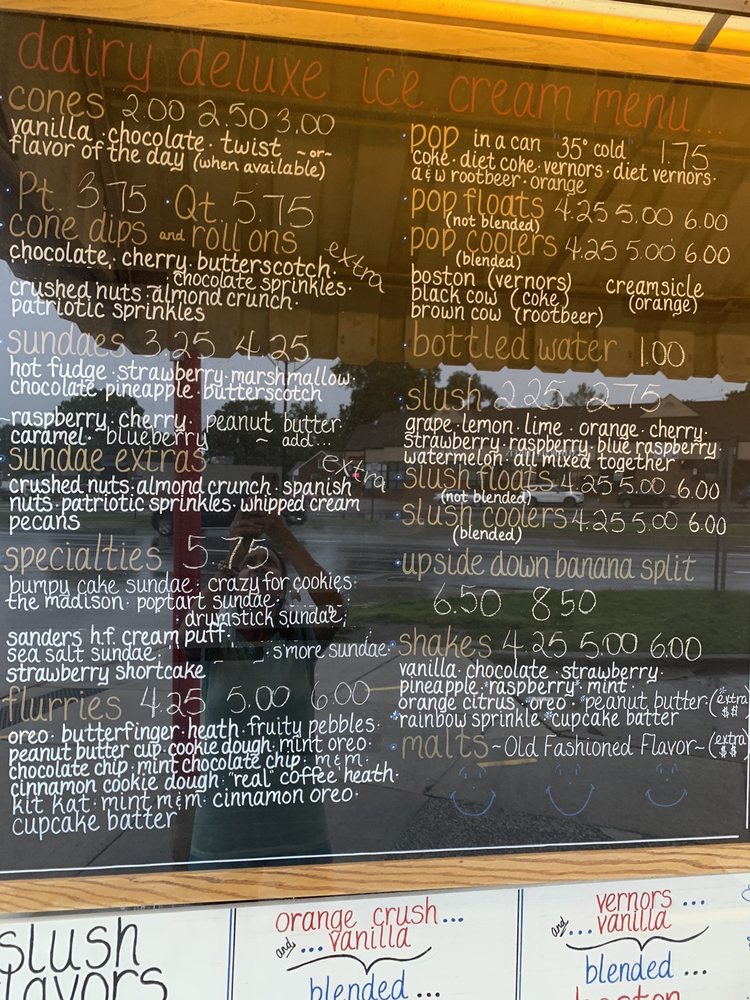 dairy deluxe ice cream menu...
cones 2.00 2.50 3.00
vanilla · chocolate · twist ~or~
flavor of the day (when available)
Pt. 3.75 · Qt. 5.75
cone dips and roll ons
extra
chocolate · cherry · butterscotch ·
chocolate sprinkles ·
crushed nuts · almond crunch ·
patriotic sprinkles
sundaes 3.25 4.25
hot fudge · strawberry · marshmallow ·
chocolate · pineapple · butterscotch
raspberry · cherry · peanut butter
caramel · blueberry ~ add...
sundae extras
extra
crushed nuts · almond crunch · spanish
nuts · patriotic sprinkles · whipped cream
pecans
specialties 5.75
bumpy cake sundae · crazy for cookies ·
the madison · poptart sundae ·
· drumstick sundae ·
sanders h.f. cream puff ·
sea salt sundae · s'more sundae ·
strawberry shortcake
flurries 4.25 5.00 6.00
oreo · butterfinger · heath · fruity pebbles ·
peanut butter cup · cookie dough · mint oreo ·
chocolate chip · mint chocolate chip · m&m ·
cinnamon cookie dough · "real" coffee heath ·
kit kat · mint m&m · cinnamon oreo ·
cupcake batter
· pop in a can 35° cold 1.75
coke · diet coke · vernors · diet vernors ·
a&w rootbeer · orange
· pop floats 4.25 5.00 6.00
(not blended)
· pop coolers 4.25 5.00 6.00
(blended)
boston (vernors) creamsicle
black cow (coke) (orange)
brown cow (rootbeer)
· bottled water 1.00
· slush 2.25 2.75
grape · lemon · lime · orange · cherry ·
strawberry · raspberry · blue raspberry ·
watermelon · all mixed together
· slush floats 4.25 5.00 6.00
(not blended)
· slush coolers 4.25 5.00 6.00
(blended)
· upside down banana split
6.50 8.50
· shakes 4.25 5.00 6.00
vanilla · chocolate · strawberry ·
pineapple · raspberry · mint ·
orange citrus · oreo · *peanut butter (extra $$)
*rainbow sprinkle *cupcake batter
· malts ~Old Fashioned Flavor~ (extra $$)
slush
flavors
orange crush...
and ...vanilla
blended ...
vernors ...
and ...vanilla
blended ...
boston